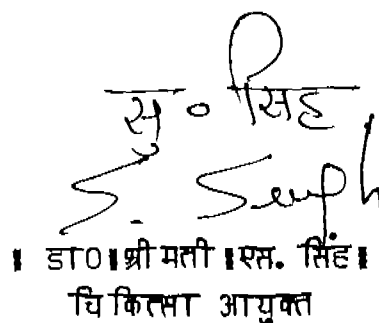 सु० सिंह
S. Singh
। डा0 । श्रीमती । एस. सिंह ।
चिकित्सा आयुक्त